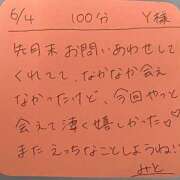 6/4 100分 Y様
先月末お問いあわせして
くれてて、なかなか会え
なかったけど、今回やっと
会えて凄く嬉しかった♡
またえっちなことしようねい
みと